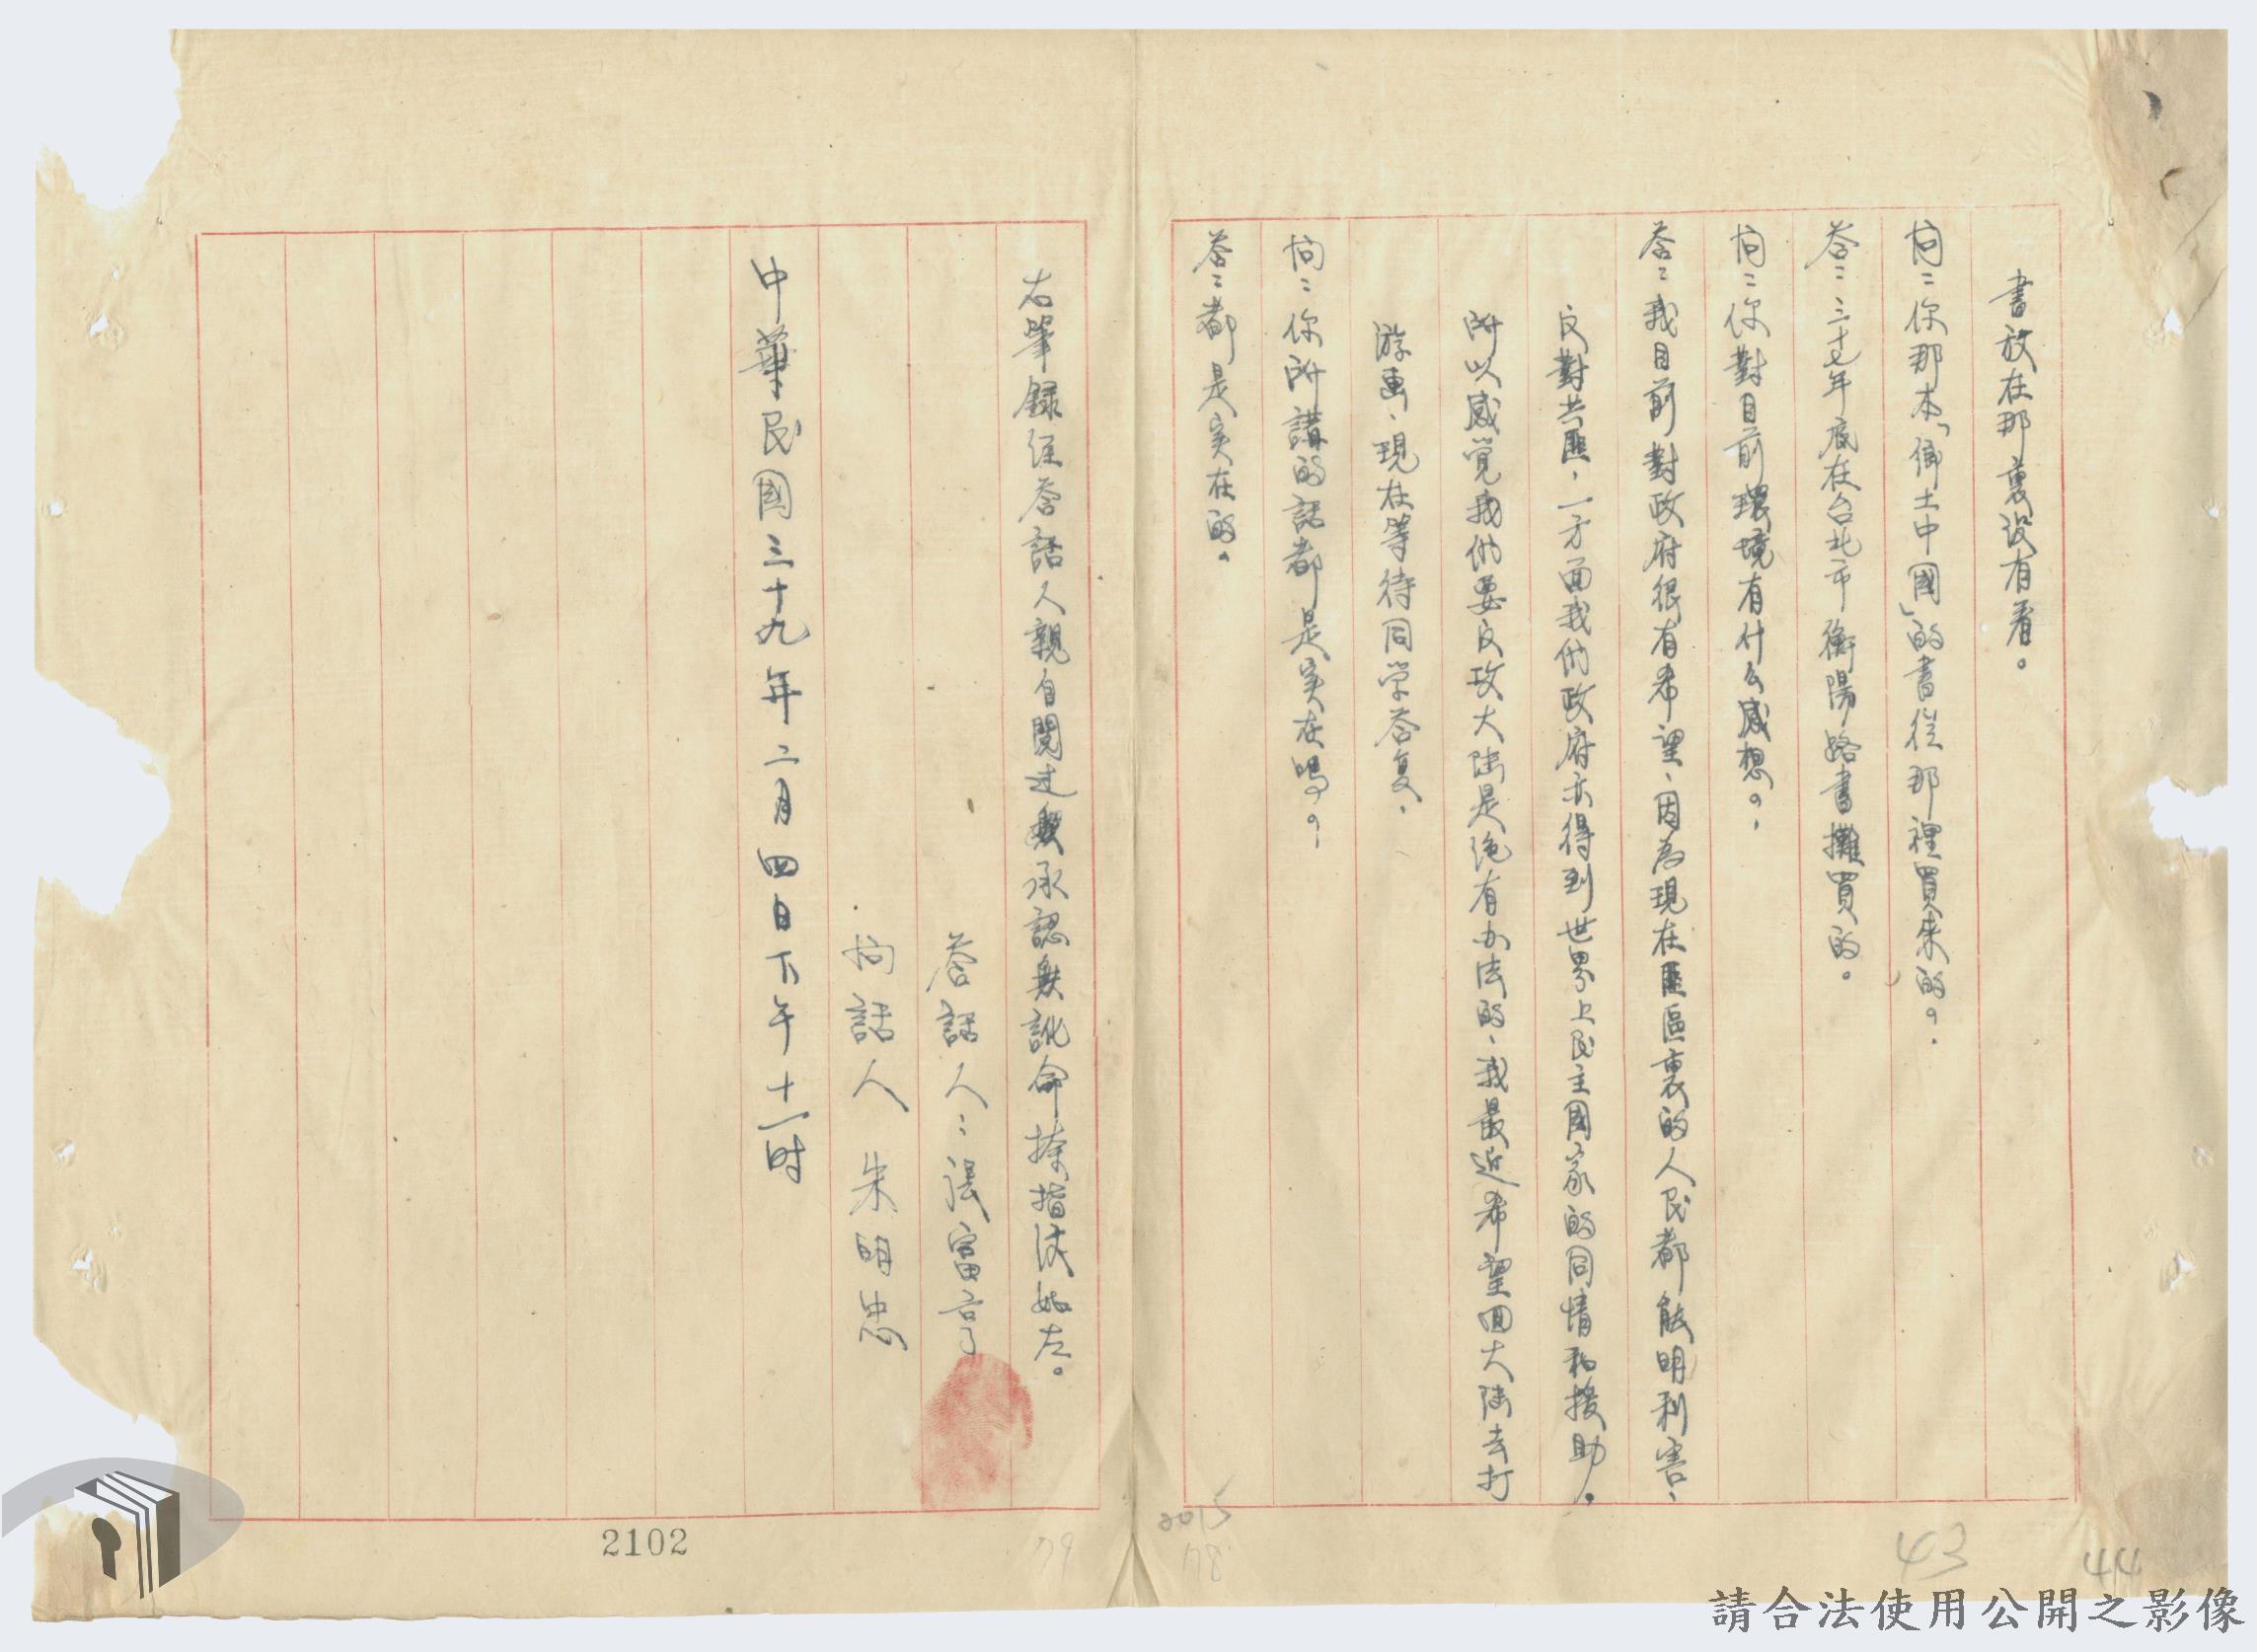 書放在那裏没有看。
問：你那本「鄉土中國」的書從那裡買来的？
答：三十七年底在台北市衡陽路書攤買的。
問：你對目前環境有什么感想？
答：我目前對政府很有希望、因為現在匪區裏的人民都能明利害、
反對共匪，一方面我们政府亦得到世界上民主國家的同情和援助。
所以感覚我们要反攻大陆是绝有办法的、我最近希望回大陆去打
游击、現在等待同学答复，
問：你所講的話都是实在嗎？
答：都是实在的。
右筆録经答話人親自閲过無承認無訛命捺指模如左。
答話人：張富亨
問話人 朱明忠
中華民國三十九年二月四日下午十一时
2102
79
2015
78
43
44
請合法使用公開之影像